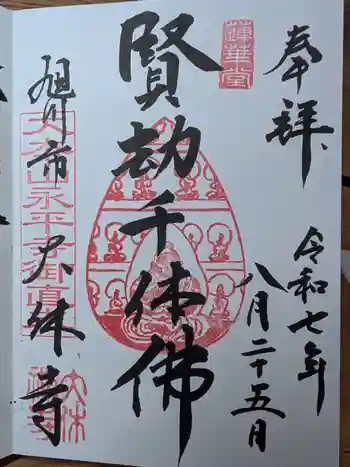 奉拝
令和七年
八月二十五月
蓮華堂
賢劫千体佛
旭川市 大休寺
大本山永平寺御直末